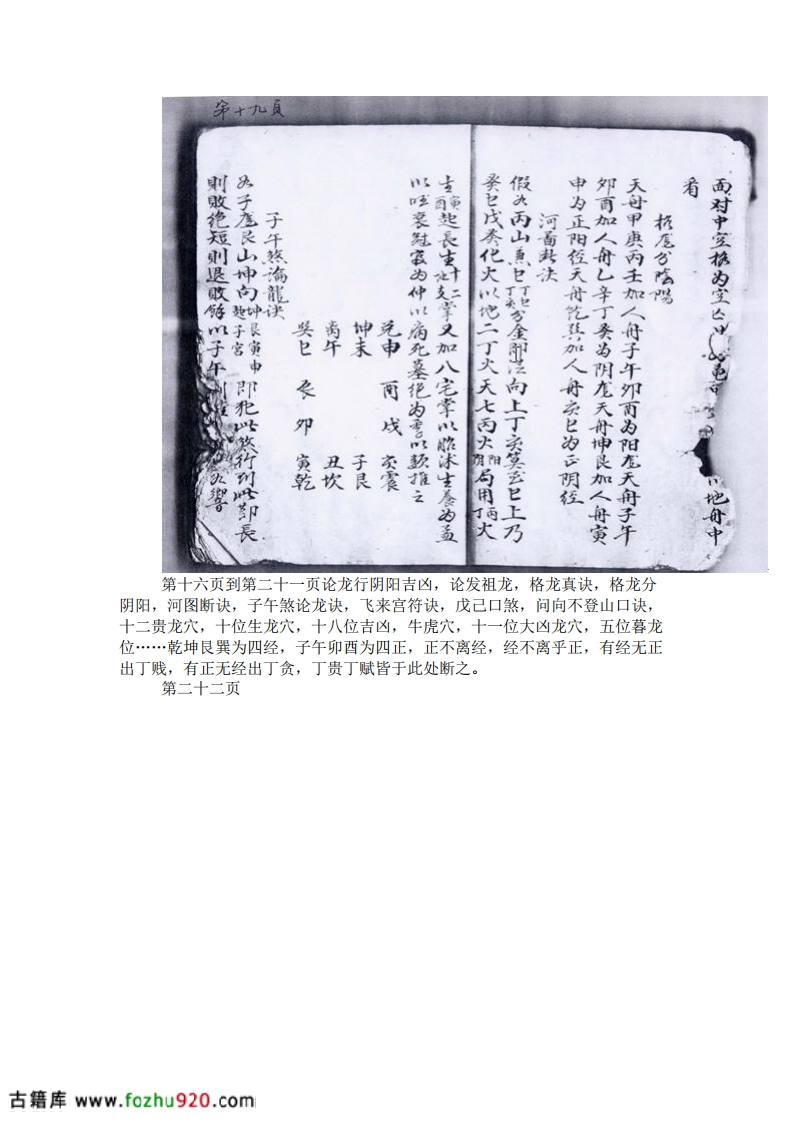 第十九頁
面对中空格为空亡
地舟中
看
格龙分陰陽
天舟甲庚丙壬加人舟子午卯酉为阳龙天舟子午
卯酉加人舟乙辛丁癸为阴龙天舟坤艮加人舟寅
申为正阳经天舟乾巽加人舟亥巳为正阴经
河啚断诀
假如丙山兼巳丁巳丁亥分金
向上丁亥算至巳上乃
癸巳戊癸化火以地二丁火天七丙火阴阳局用丁丙火
生寅酉起長生十二地支掌又加八宅掌以胎沐生養为孟
以旺衰冠官为仲以病死墓绝为季以類推之
兑申 酉 戌 亥震
坤未 子艮
离午 丑坎
巽巳 辰 卯 寅乾
子午煞論龍诀
如子龙艮山坤向坤艮寅申起子宫即犯此煞行到此節長
則敗絶短則退敗餘以子午
响
第十六页到第二十一页论龙行阴阳吉凶，论发祖龙，格龙真诀，格龙分
阴阳，河图断诀，子午煞论龙诀，飞来宫符诀，戊己口煞，问向不登山口诀，
十二贵龙穴，十位生龙穴，十八位吉凶，牛虎穴，十一位大凶龙穴，五位暮龙
位……乾坤艮巽为四经，子午卯酉为四正，正不离经，经不离乎正，有经无正
出丁贱，有正无经出丁贪，丁贵丁赋皆于此处断之。
第二十二页
古籍库 www.fozhu920.com